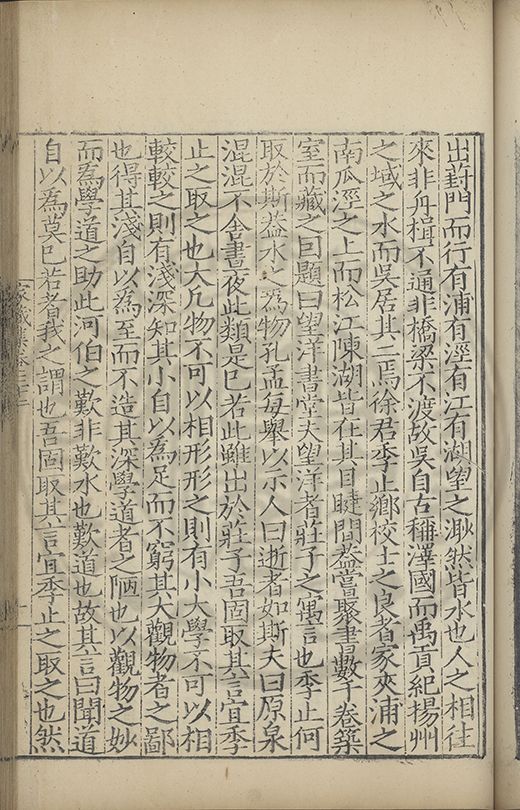 出葑門而行有浦有涇有江有湖望之渺然皆水也人之相往
來非舟楫不通非橋梁不渡故吳自古稱澤國而禹貢紀楊州
之域之水而吳居其二焉徐君季止鄉校士之良者家夾浦之
南瓜涇之上而松江陳湖皆在其目睫間葢嘗聚書數千卷築
室而藏之囙題曰望洋書堂夫望洋者莊子之寓言也季止何
取於斯葢水之為物孔孟每舉以示人曰逝者如斯夫曰原泉
混混不舍晝夜此類是巳若此雖出於莊子吾固取其言宜季
止之取之也大凡物不可以相形形之則有小大學不可以相
較較之則有淺深知其小自以為足而不窮其大觀物者之鄙
也得其淺自以為至而不造其深學道者之陋也以觀物之妙
而為學道之助此河伯之歎非歎水也歎道也故其言曰聞道
自以為莫巳若者我之謂也吾固取其言宜季止之取之也然
家藏集卷三十